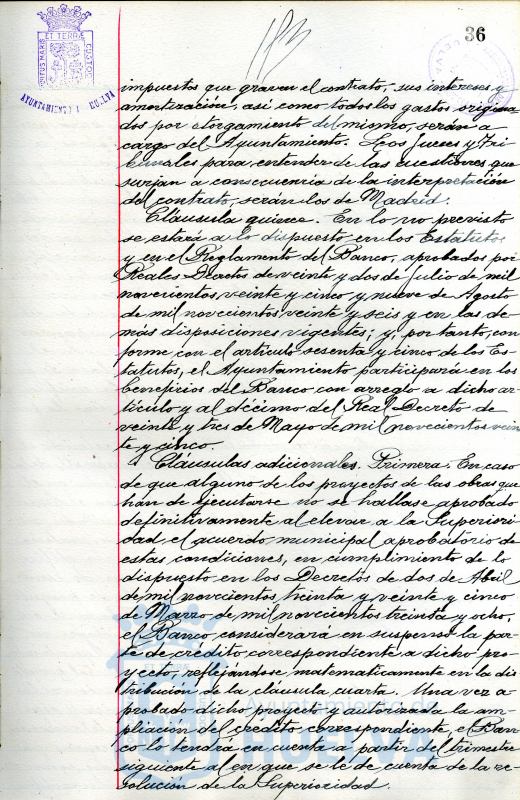 36
PORTUS MARIS ET TERRÆ CUSTODIA
AYUNTAMIENTO HUELVA
impuestos que graven el contrato, sus intereses y
amortización, así como todos los gastos origina
dos por otorgamiento del mismo, serán a
cargo del Ayuntamiento. Los Jueces y Tri
bunales para entender de las cuestiones que
surjan a consecuencia de la interpretación
del contrato, serán los de Madrid.
Cláusula quince. En lo no previsto
se estará a lo dispuesto en los Estatutos
y en el Reglamento del Banco, aprobados por
Reales Decretos de veinte y dos de Julio de mil
novecientos veinte y cinco y nueve de Agosto
de mil novecientos veinte y seis y en las de
más disposiciones vigentes; y, por tanto, con
forme con el artículo sesenta y cinco de los Es-
tatutos, el Ayuntamiento participará en los
beneficios del Banco con arreglo a dicho ar-
tículo y al décimo del Real Decreto de
veinte y tres de Mayo de mil novecientos vein
te y cinco.
Cláusulas adicionales. Primera. En caso
de que alguno de los proyectos de las obras que
han de ejecutarse no se hallase aprobado
definitivamente al elevar a la Superiori-
dad el acuerdo municipal aprobatorio de
estas condiciones, en cumplimiento de lo
dispuesto en los Decretos de dos de Abril
de mil novecientos treinta y veinte y cinco
de Marzo de mil novecientos treinta y ocho,
el Banco considerará en suspenso la par-
te de crédito correspondiente a dicho pro-
yecto, reflejándose matematicamente en la dis
tribución de la cláusula cuarta. Una vez a-
probado dicho proyecto y autorizada la am-
pliación del crédito correspondiente, el Ban-
co lo tendrá en cuenta a partir del trimestre
siguiente al en que se le dé cuenta de la re-
solución de la Superioridad.
Ayuntamiento de
HUELVA